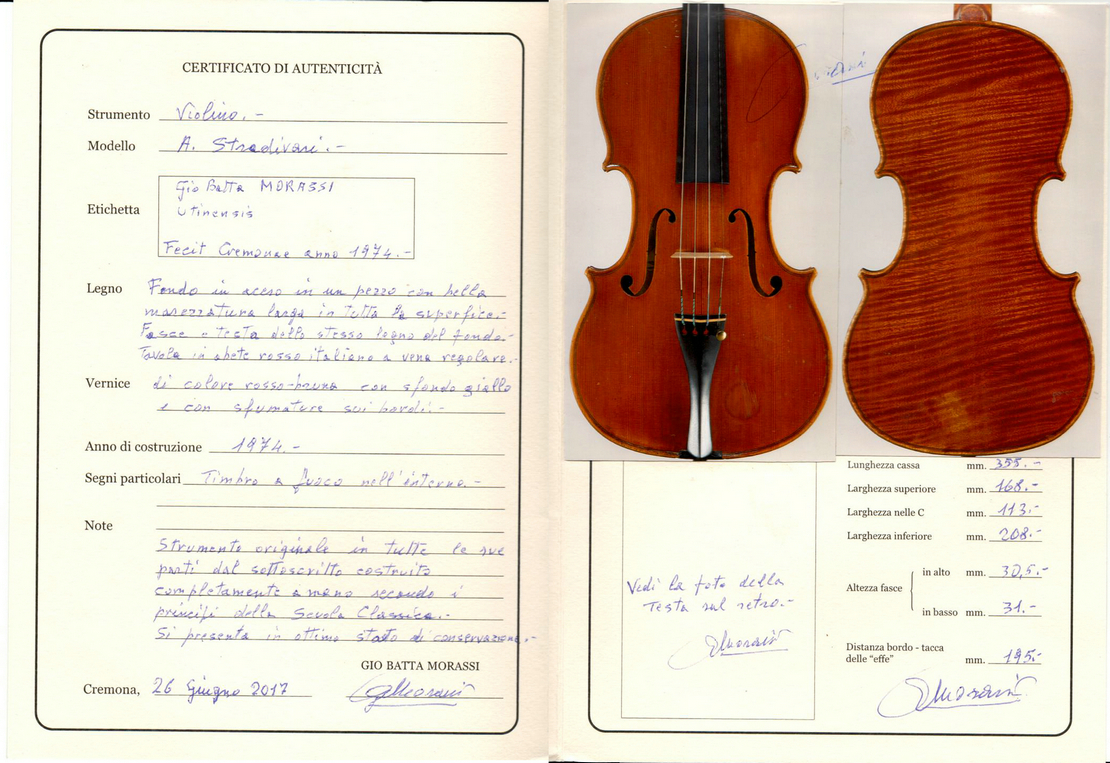 CERTIFICATO DI AUTENTICITÀ
Strumento Violino.-
Modello A. Stradivari.-
Etichetta Gio Batta MORASSI
Utinensis
Fecit Cremonae anno 1974.-
Legno Fondo in acero in un pezzo con bella
marezzatura larga in tutta la superfice.-
Fasce e testa dello stesso legno del fondo.-
Tavola in abete rosso italiano a vena regolare.-
Vernice di colore rosso-bruno con sfondo giallo
e con sfumature sui bordi.-
Anno di costruzione 1974.-
Segni particolari Timbro a fuoco nell'interno.-
Note
Strumento originale in tutte le sue
parti dal sottoscritto costruito
completamente a mano secondo i
principi della Scuola Classica.-
Si presenta in ottimo stato di conservazione.-
GIO BATTA MORASSI
Cremona, 26 Giugno 2017 GBMorassi
Morassi
Lunghezza cassa mm. 355.-
Larghezza superiore mm. 168.-
Larghezza nelle C mm. 113.-
Larghezza inferiore mm. 208.-
Altezza fasce in alto mm. 30,5.-
in basso mm. 31.-
Distanza bordo - tacca
delle "effe" mm. 195.-
Vedi la foto della
Testa sul retro.-
GBMorassi
GBMorassi